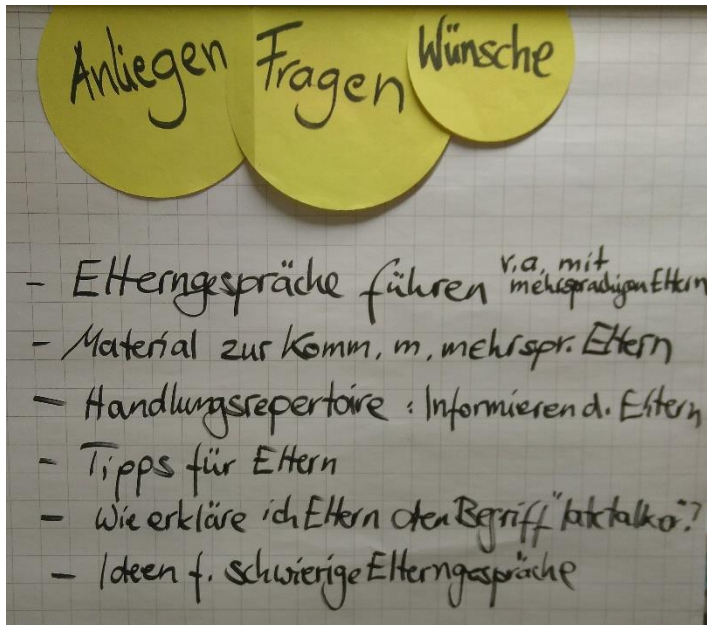 Anliegen Fragen Wünsche
- Elterngespräche führen v.a. mit mehrsprachigen Eltern
- Material zur Komm. m. mehrspr. Eltern
- Handlungsrepertoire : Informieren d. Eltern
- Tipps für Eltern
- Wie erkläre ich Eltern den Begriff
- Ideen f. schwierige Elterngespräche